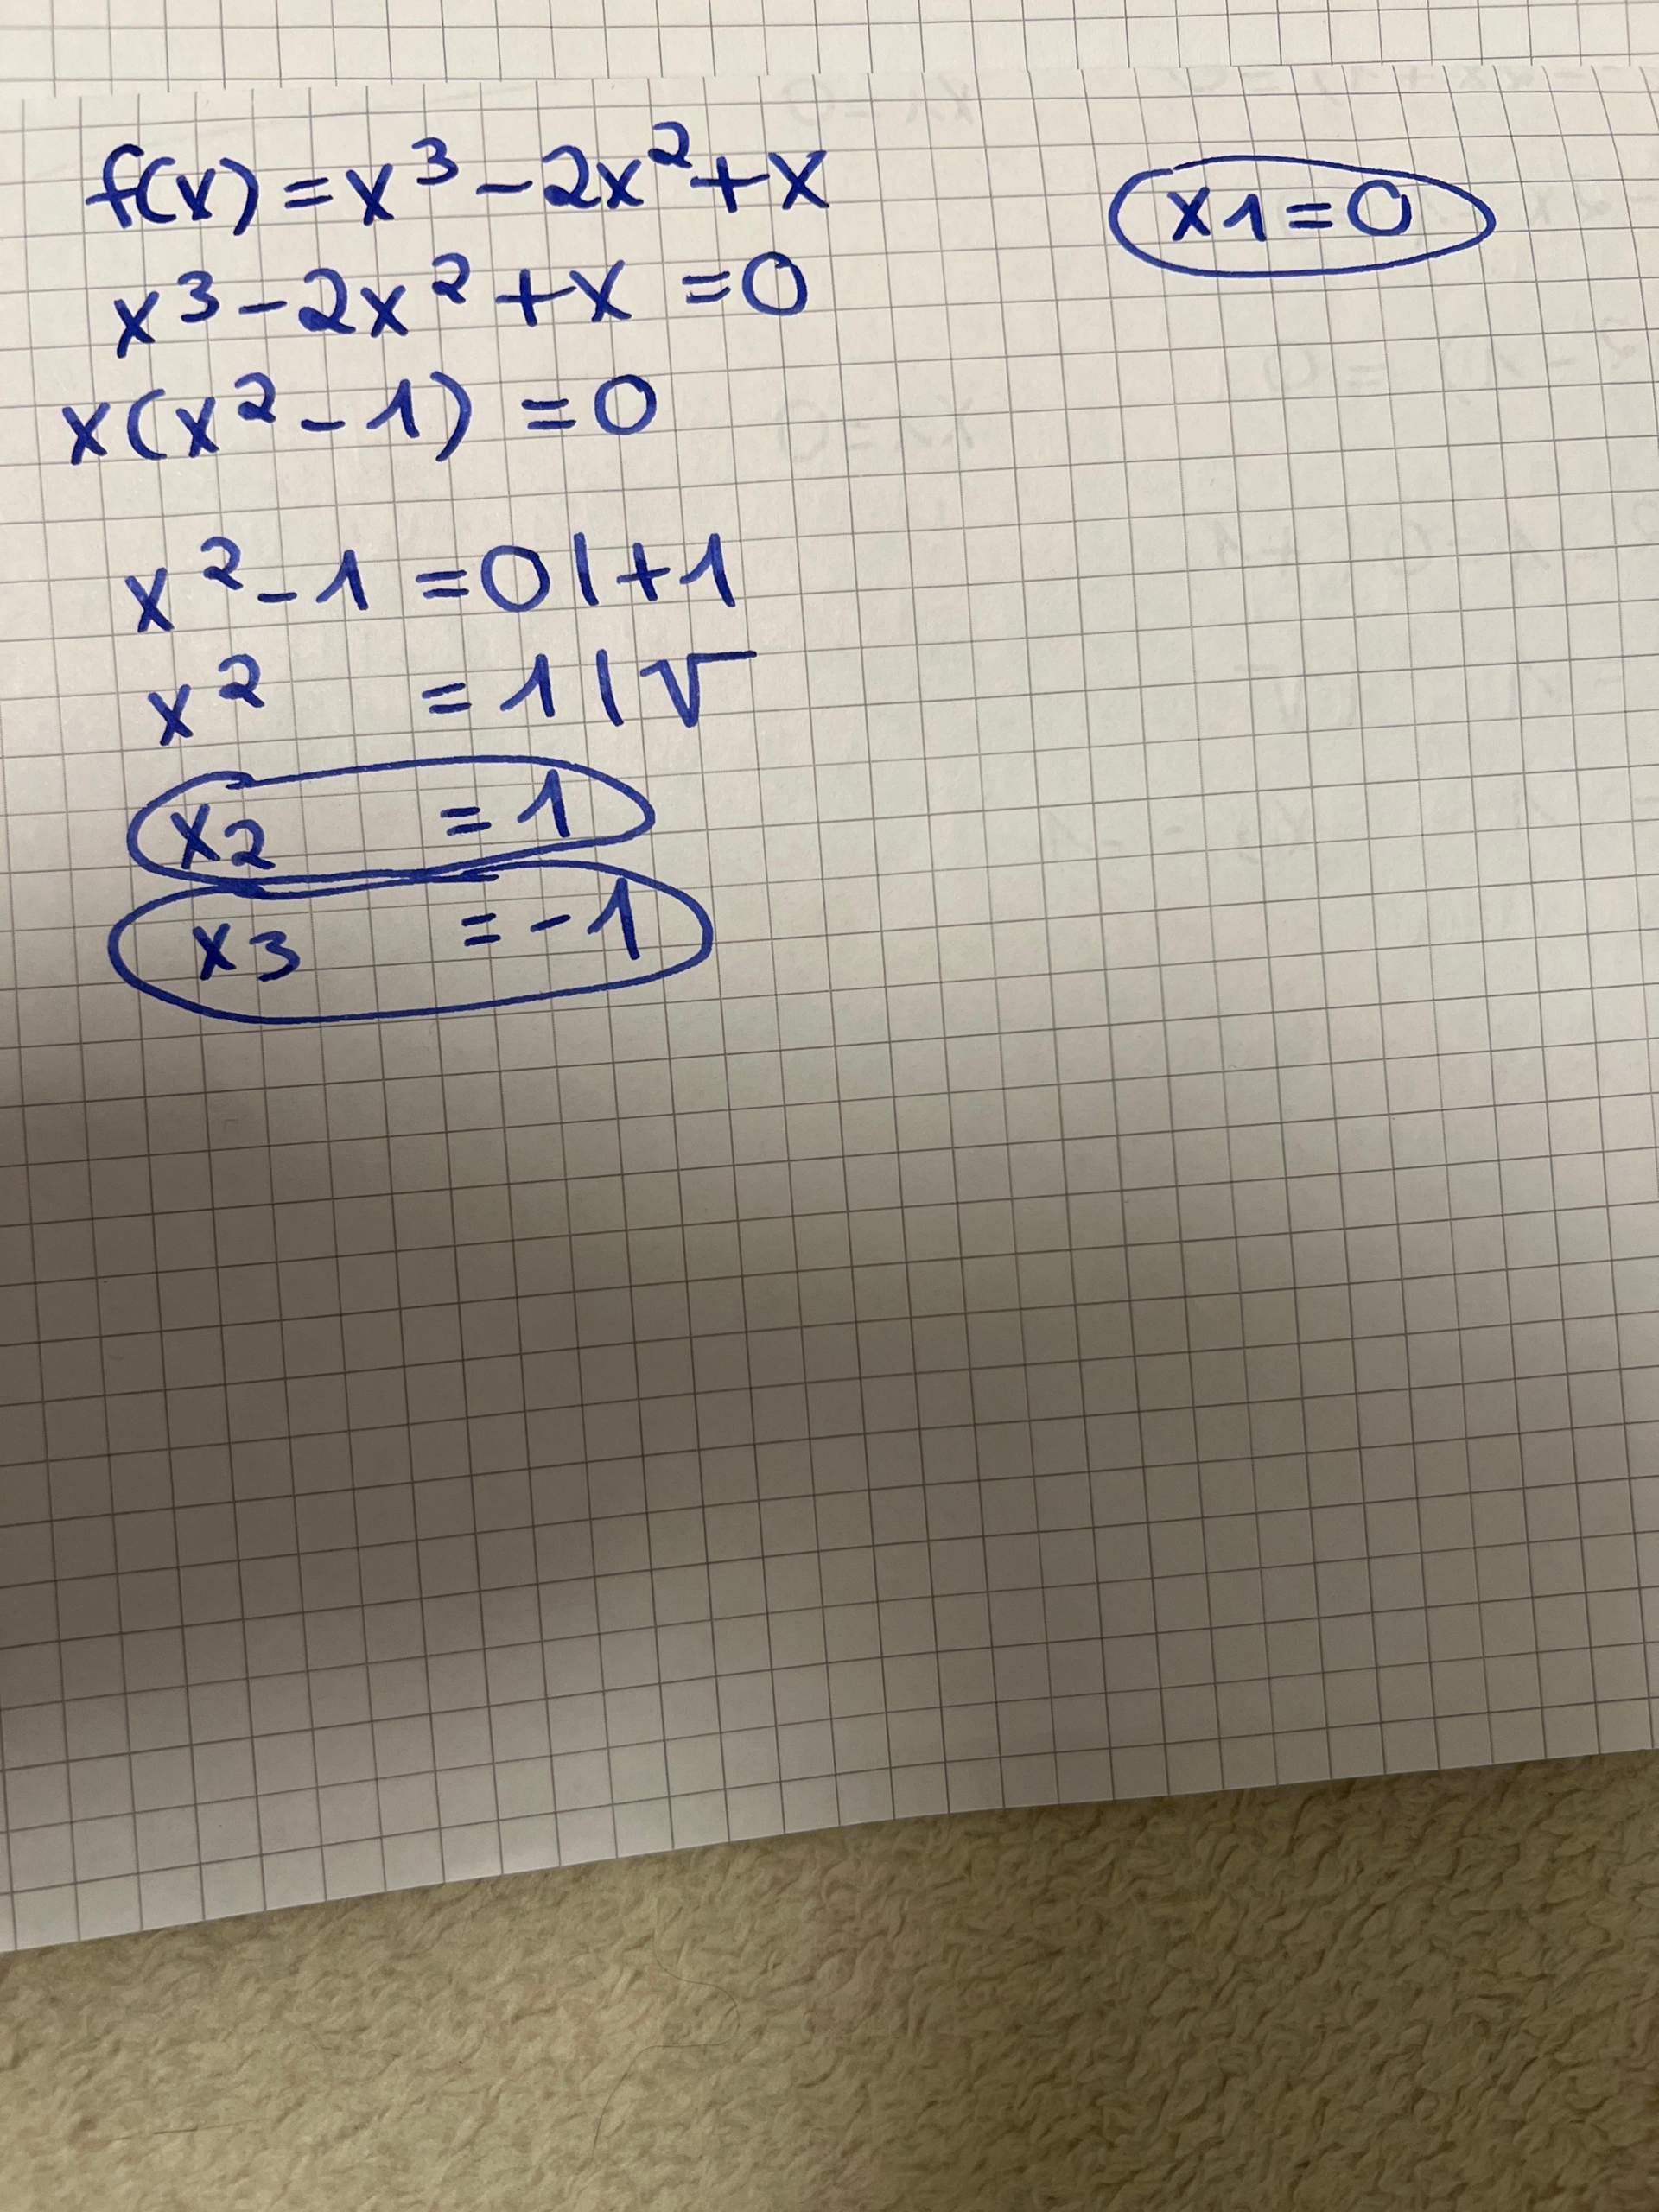 f(x) = x³ - 2x² + x
x1 = 0
x³ - 2x² + x = 0
x(x² - 1) = 0
x² - 1 = 0 | + 1
x² = 1 | √
x2 = 1
x3 = -1